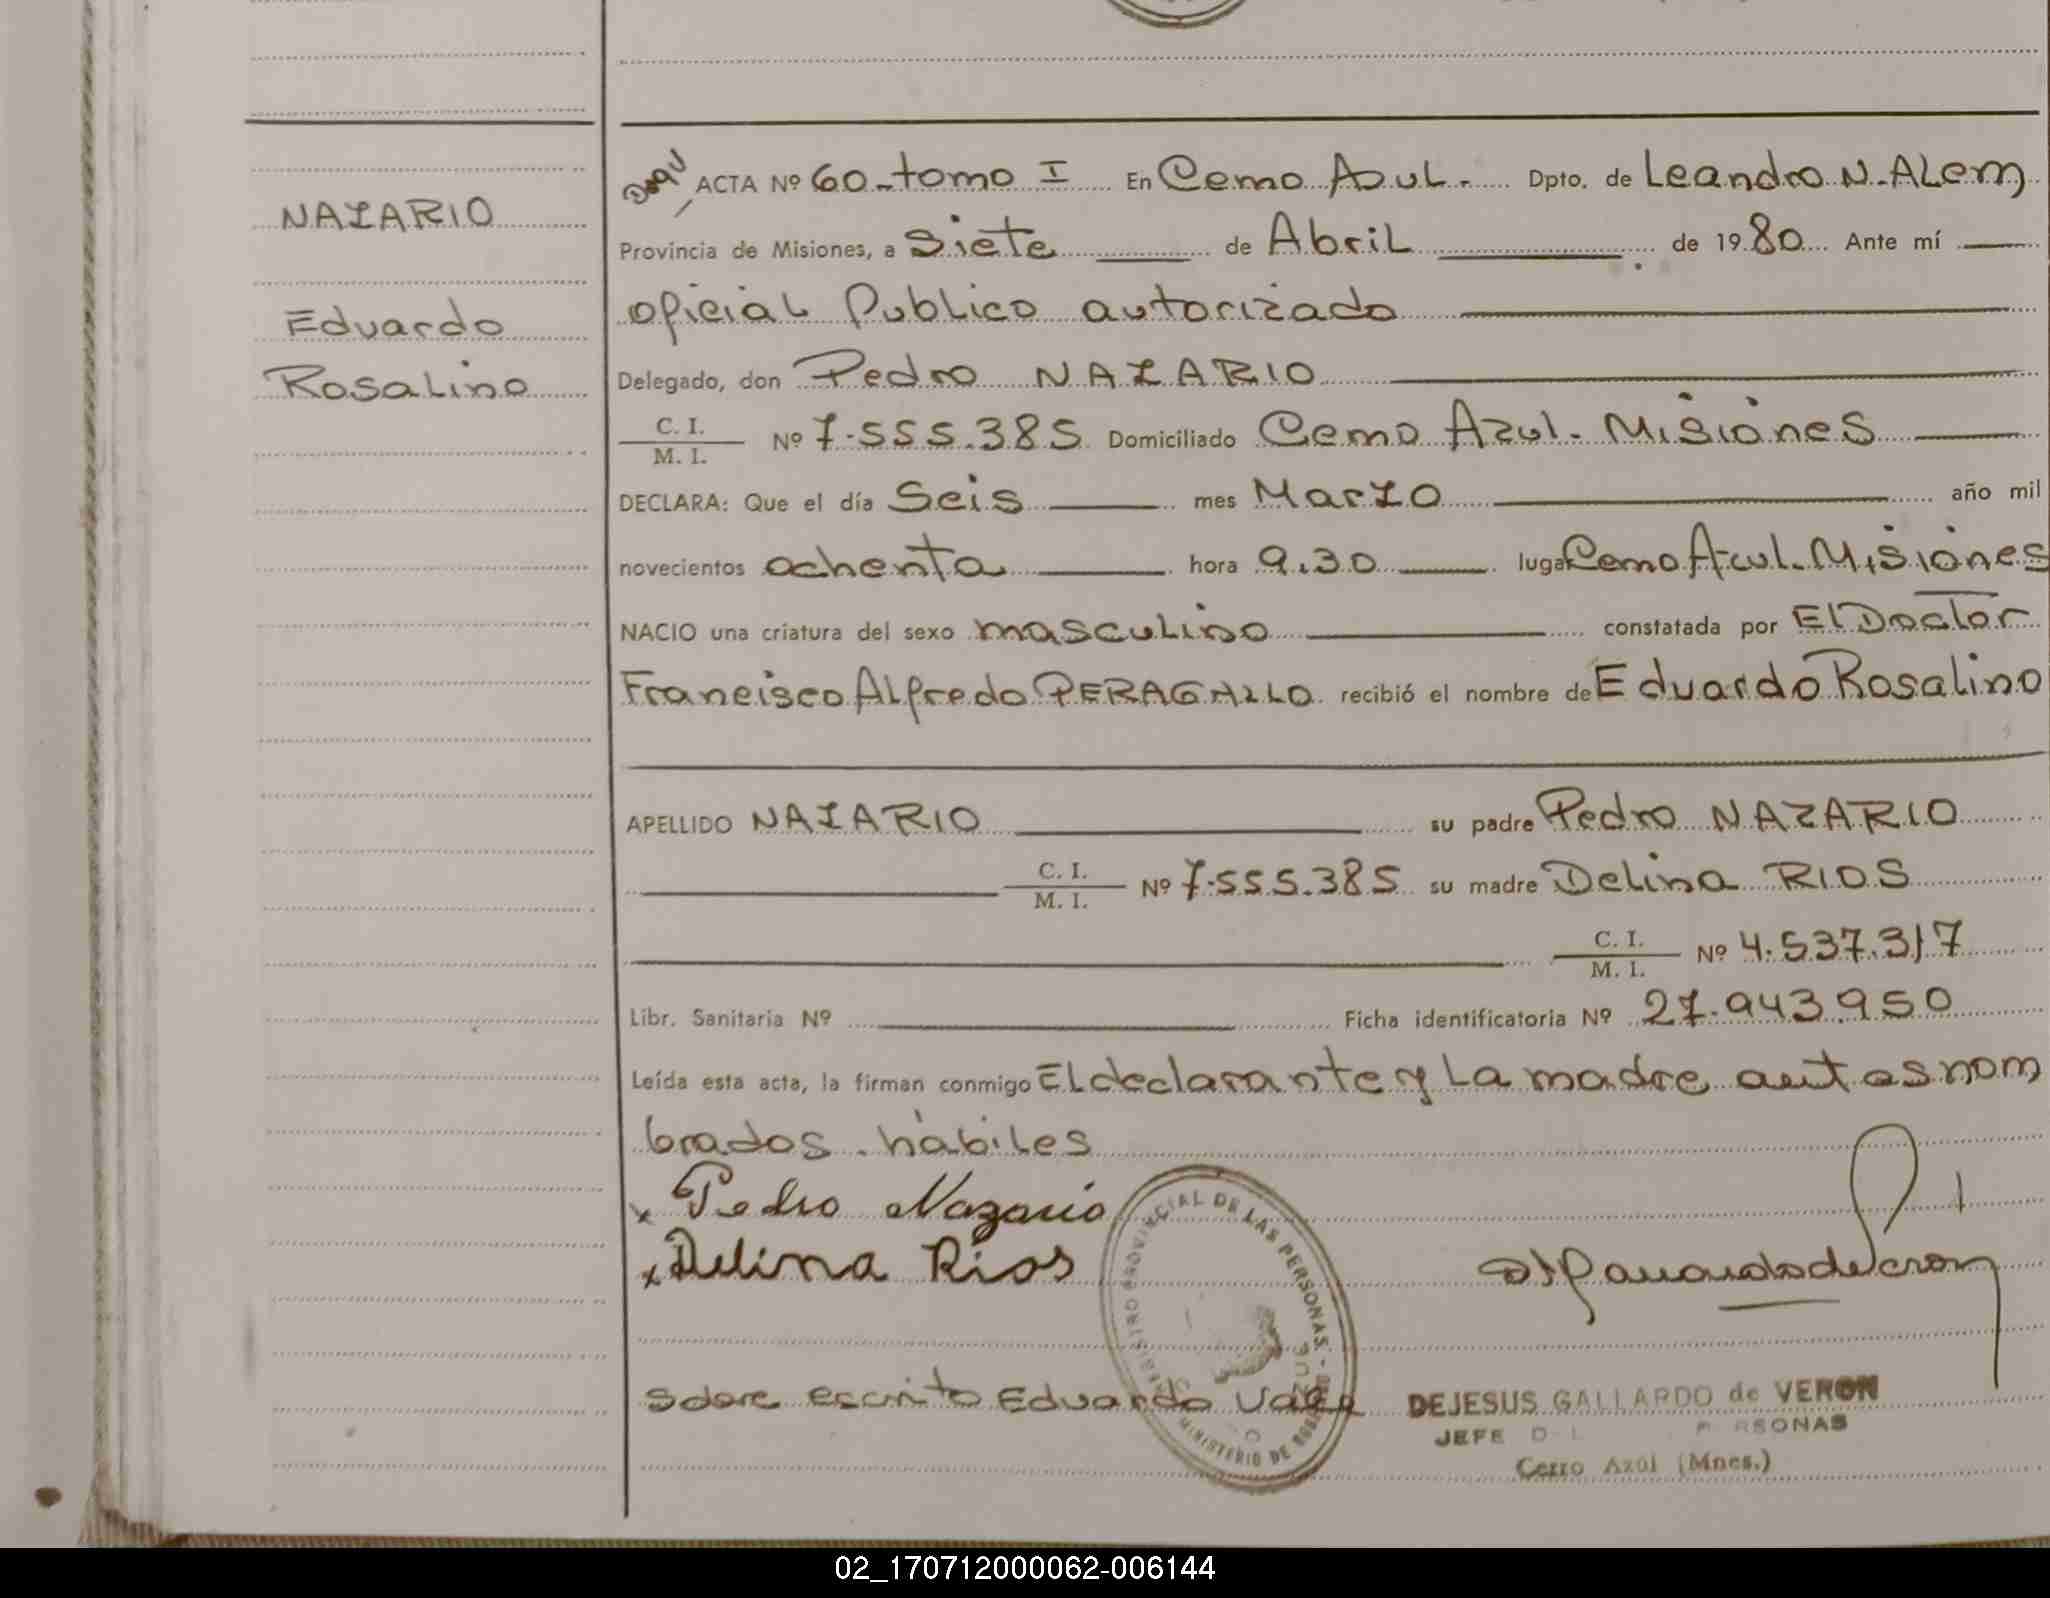 NAZARIO
Eduardo
Rosalino
ACTA Nº 60-tomo I En Cerro Azul. Dpto. de Leandro N. ALem
Provincia de Misiones, a Siete de Abril de 1980 Ante mí
oficial Publico autorizado
Delegado, don Pedro NAZARIO
C. I.
M. I. Nº 7.555.385 Domiciliado Cerro Azul. Misiones
DECLARA: Que el día Seis mes Marzo año mil
novecientos ochenta hora 9.30 lugar Cerro Azul. Misiones
NACIO una criatura del sexo masculino constatada por El Doctor
Francisco Alfredo PERAGALLO recibió el nombre de Eduardo Rosalino
APELLIDO NAZARIO su padre Pedro NAZARIO
C. I.
M. I. Nº 7.555.385 su madre Delina RIOS
C. I.
M. I. Nº 4.537.317
Libr. Sanitaria Nº Ficha identificatoria Nº 27.943.950
Leída esta acta, la firman conmigo El declarante y La madre antes nom
brados. hábiles
x Pedro Nazario
x Delina Rios
REGISTRO PROVINCIAL DE LAS PERSONAS - MINISTERIO DE GOB
Sobre escrito Eduardo Vale
DEJESUS GALLARDO de VERON
JEFE D L P RSONAS
Cerro Azul (Mnes.)
02_170712000062-006144